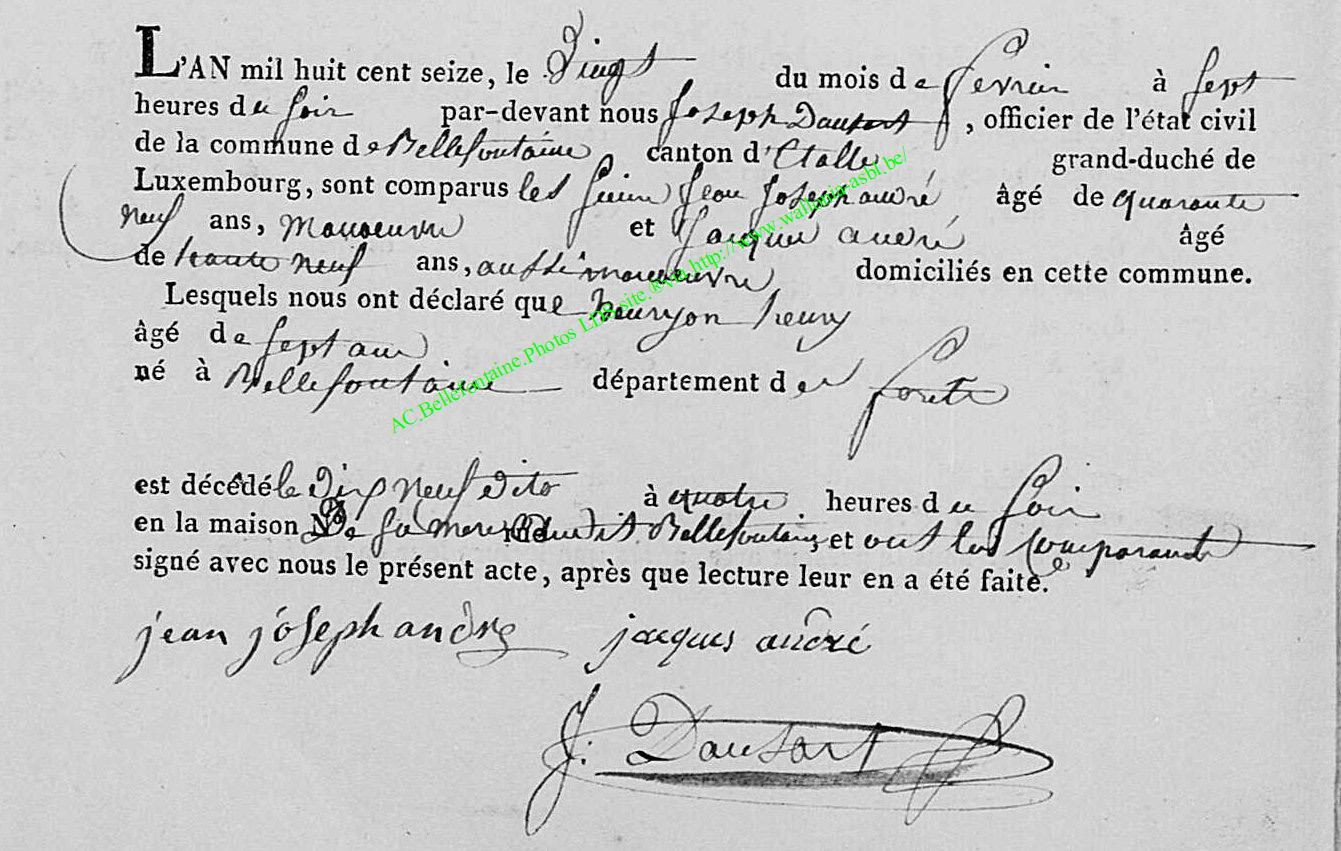 L'AN mil huit cent seize, le Vingt du mois de fevrier à sept
heures du soir par-devant nous Joseph Dausort, officier de l'état civil
de la commune de Bellefontaine canton d'Etalle grand-duché de
Luxembourg, sont comparus les Jean Joseph andré, âgé de quarante
neuf ans, Manoeuvre et Jacques andré âgé
de trente neuf ans, aussi manoeuvre domiciliés en cette commune.
Lesquels nous ont déclaré que henry
âgé de sept ans
né à Bellefontaine département des forets
est décédé le Dix neuf dito à quatre heures du soir
en la maison De sa mere audit Bellefontaine, et ont les Comparants
signé avec nous le présent acte, après que lecture leur en a été faite.
jean joseph andre jacques andré
J. Dausort
AC.Bellefontaine.Photos http://www.wallonia-asbl.be/